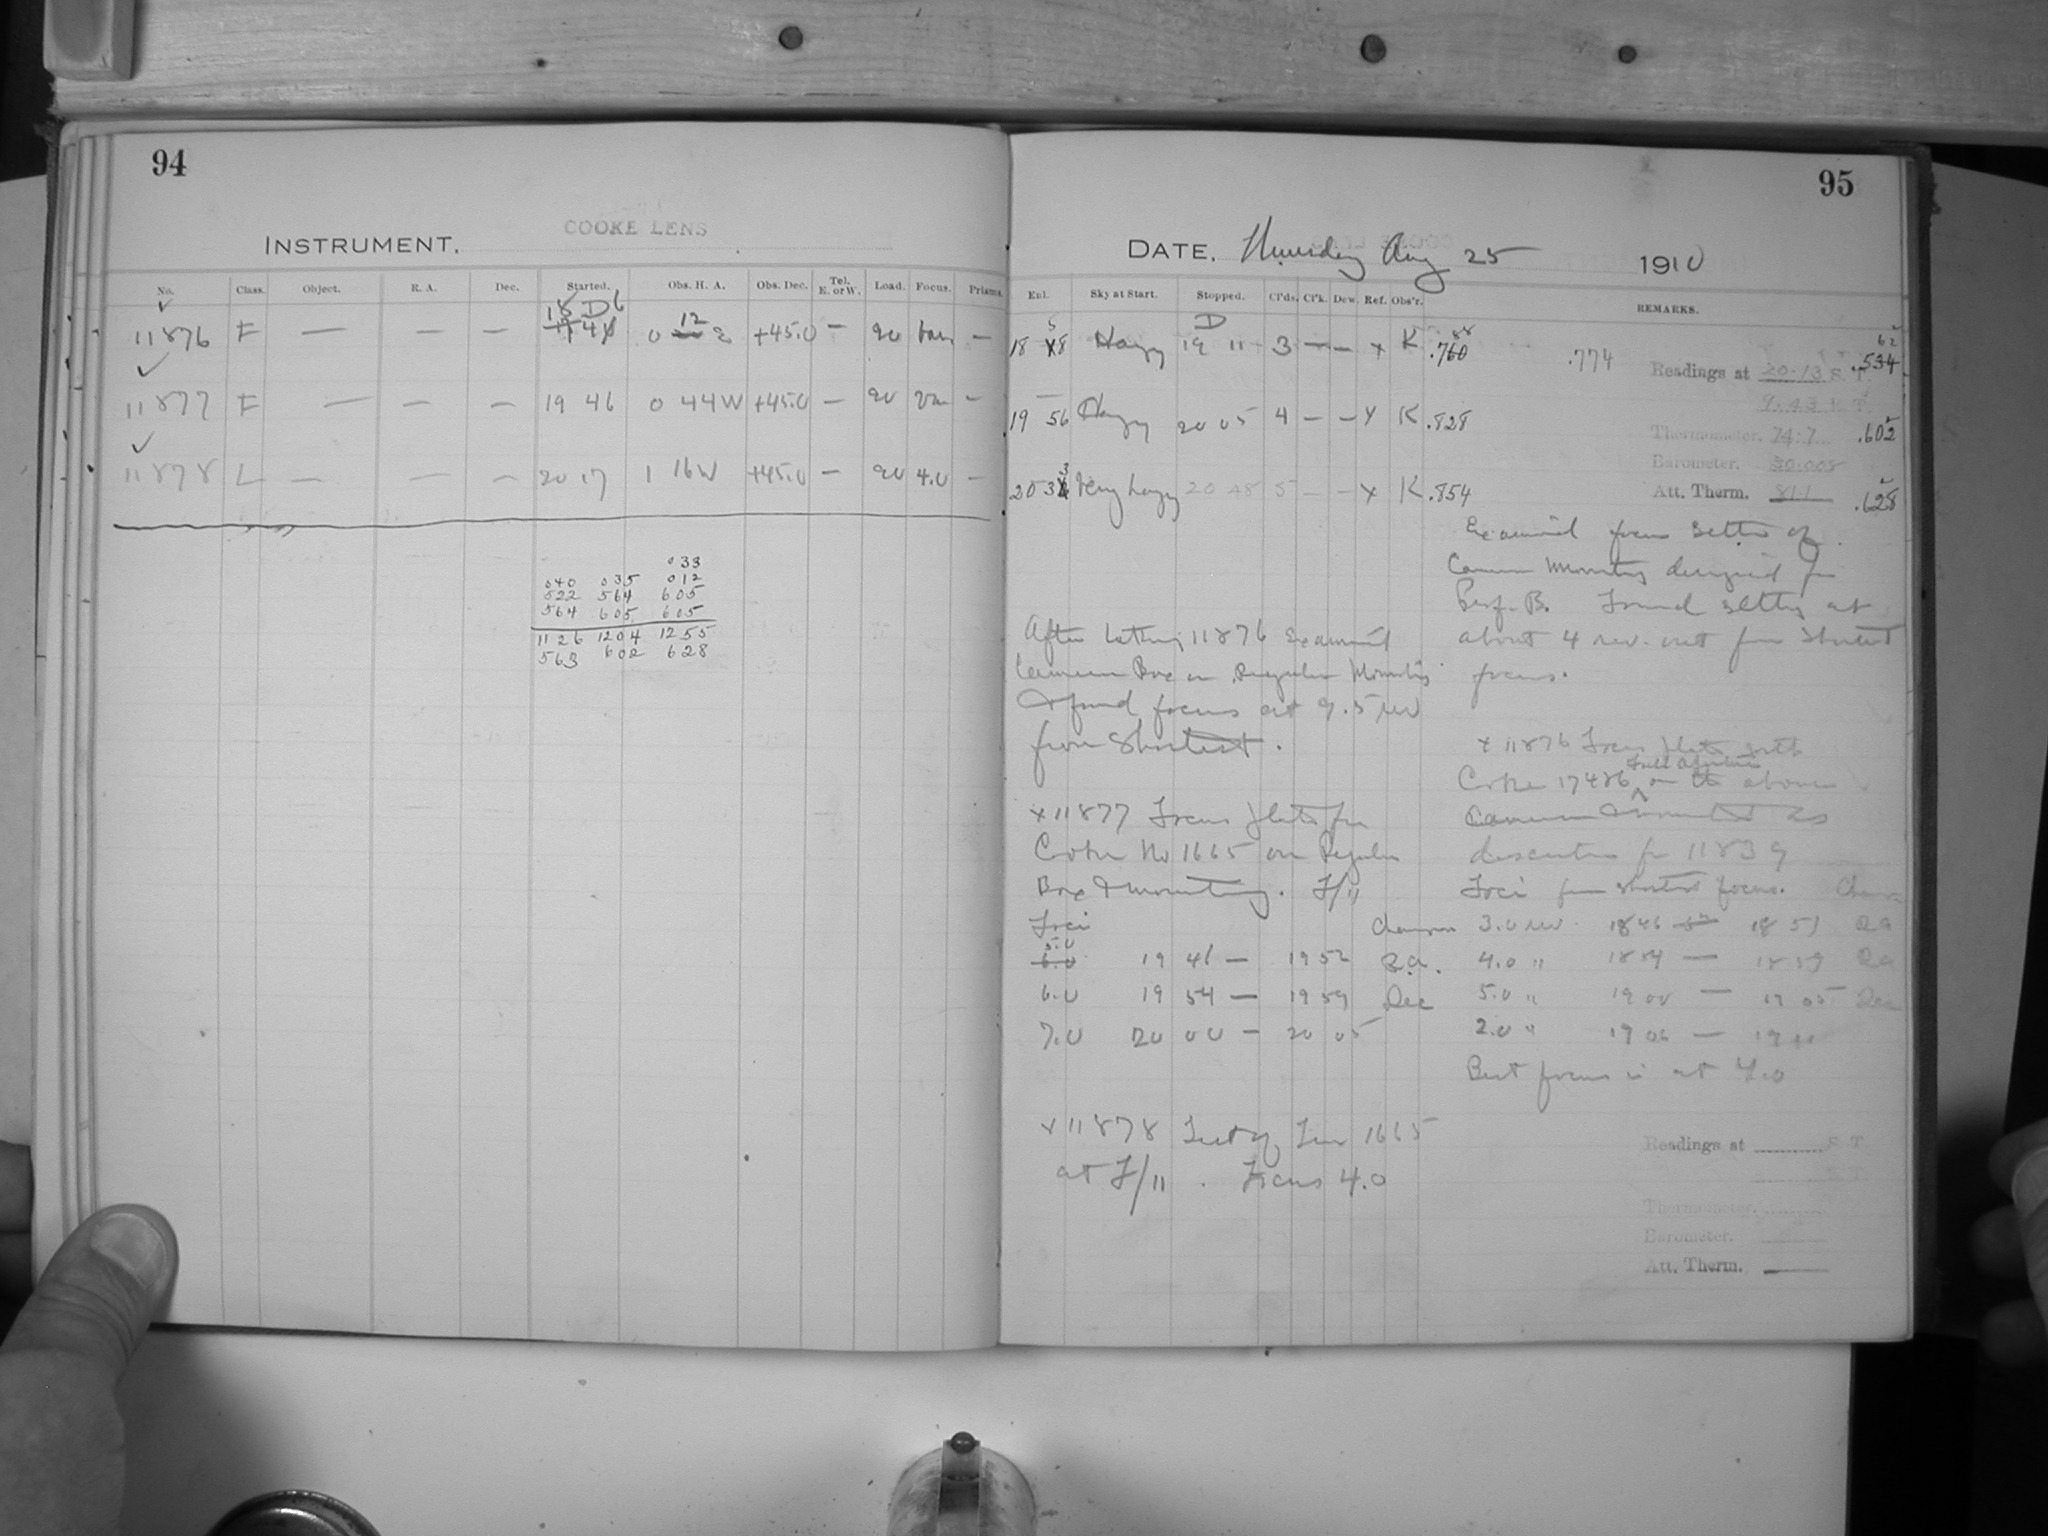 94
COOKE LENS
INSTRUMENT.
No. Class. Object. R. A. Dec. Started. Obs. H. A. Obs. Dec. Tel. E. or W. Load. Focus. Prisms.
18 D 6
11876 F — — — 0 12 +45.0 — 90 Var —
11877 F — — — 19 46 0 44W +45.0 — 90 Var —
11878 L — — — 20 17 1 16W +45.0 — 90 4.0 —
033
040 035 012
522 564 605
564 605 605
1126 1204 1255
563 602 628
95
DATE. Thursday Aug 25 1910
Exl. Sky at Start. Stopped. Cl'ds. Cl'k. Dew. Ref. Obs'r. REMARKS.
18 58 Hazy D 19 11 3 — — x K .788 .774
19 56 Hazy 20 05 4 — — x K .828
20 33 Very hazy 20 48 5 — — x K .854
Readings at 20.13 S. T. .534
9.43
Thermometer. 74.7 .602
Barometer. 30.008
Att. Therm. 81.1 .628
Examined focus setting of
Camera Mounting designed for
Prof. B. Found setting at
about 4 rev. out from shortest
focus.
After taking 11876 examined
Camera Box on Regular Mounting
& found focus at 9.5 rev
from shortest.
x 11876 Focus plate with
full aperture
Cooke 17486 on the above
Camera & mounted as
described for 11839
Foci from shortest focus.
3.0 rev. 18 46 18 51 RA
4.0 " 18 54 — 18 59 RA
5.0 " 19 00 — 19 05 Dec
2.0 " 19 06 — 19 11
Best focus is at 4.0
x 11877 Focus plate for
Cooke No 1665 on Regular
Box & mounting. F/11
Foci
5.0
6.0 19 46 — 19 52 R.A.
6.0 19 54 — 19 59 Dec
7.0 20 00 — 20 05
x 11878 Test of Lens 1665
at F/11. Focus 4.0
Readings at S. T.
S. T.
Thermometer.
Barometer.
Att. Therm.